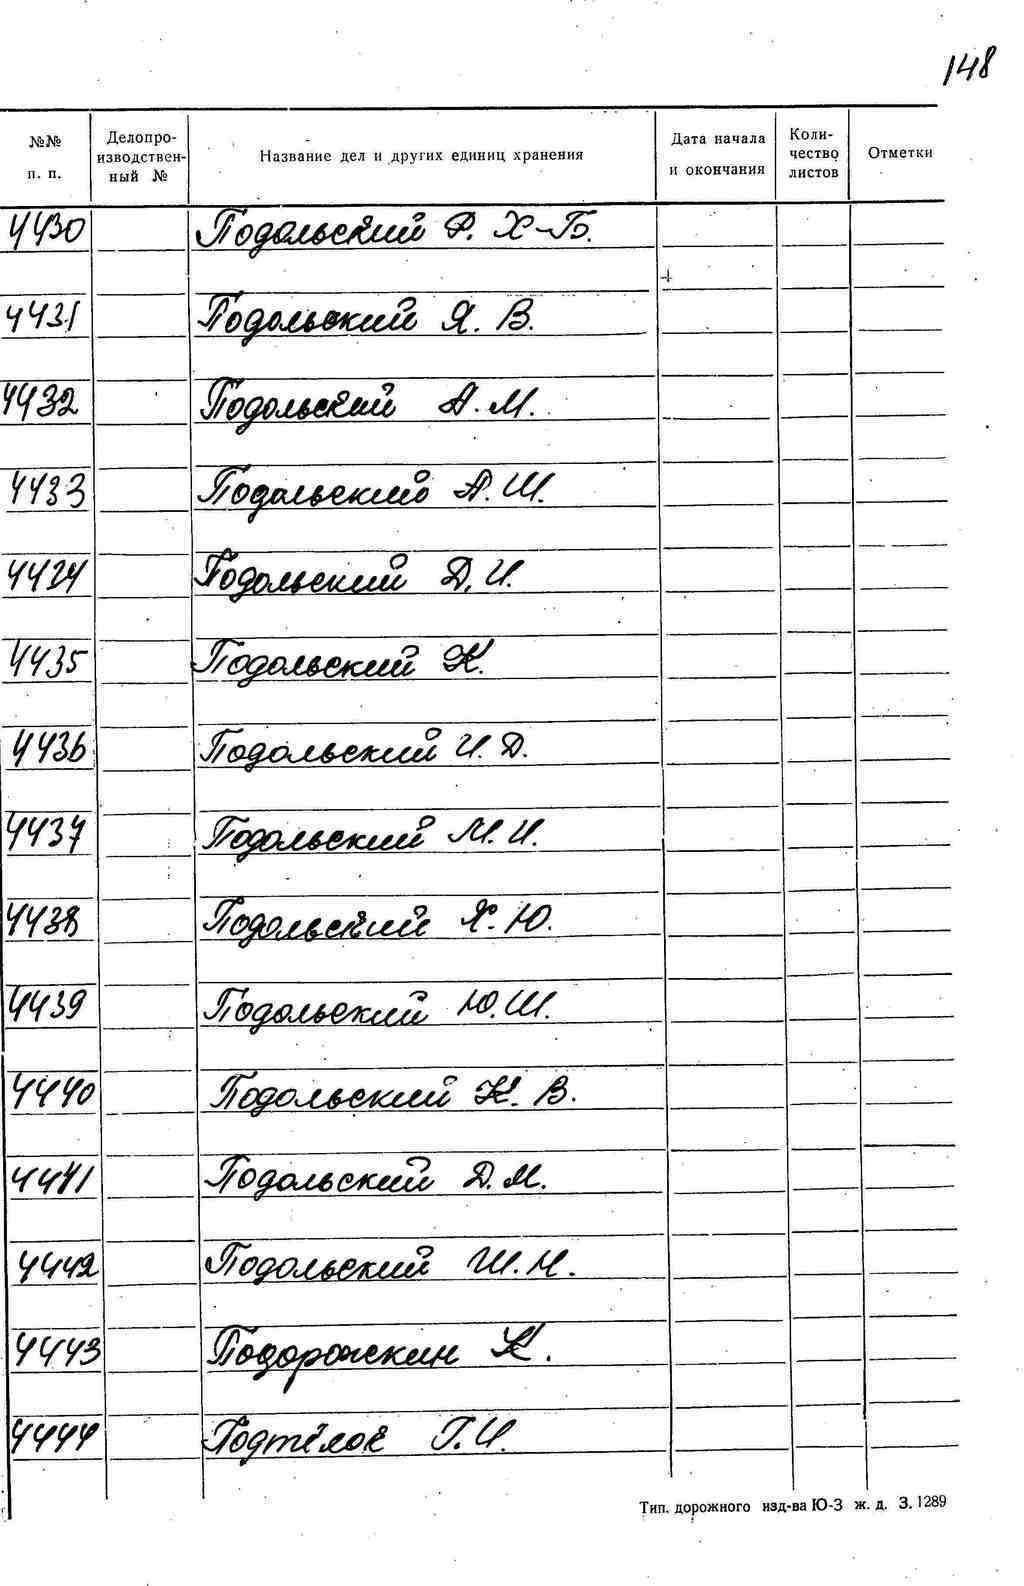 148
№№ п. п. Делопро-изводствен-ный № Название дел и других единиц хранения Дата начала и окончания Коли-чество листов Отметки
4430 Подольский Ф. Х-Б.
4431 Подольский Я. В.
4432 Подольский А. М.
4433 Подольский А. Ш.
4434 Подольский Д. И.
4435 Подольский К.
4436 Подольский И. Д.
4437 Подольский М. И.
4438 Подольский Ю.
4439 Подольский Ю. Ш.
4440 Подольский К. В.
4441 Подольский Д. М.
4442 Подольский Ш. Н.
4443 Подорожскин К.
4444 Подтёлок Г. И.
Тип. дорожного изд-ва Ю-З ж. д. З. 1289